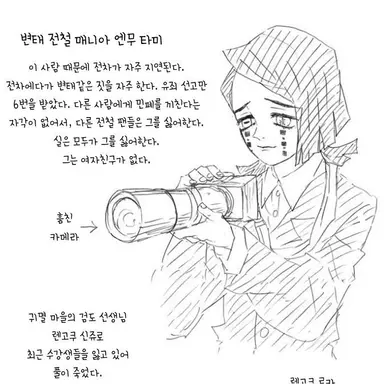 변태 전철 매니아 엔무 타미
이 사람 때문에 전차가 자주 지연된다.
전차에다가 변태같은 짓을 자주 한다. 유죄 선고만
6번을 받았다. 다른 사람에게 민폐를 끼친다는
자각이 없어서, 다른 전철 팬들은 그를 싫어한다.
실은 모두가 그를 싫어한다.
그는 여자친구가 없다.
훔친
카메라
귀멸 마을의 검도 선생님
렌고쿠 신쥬로
최근 수강생들을 잃고 있어
풀이 죽었다.
렌고쿠